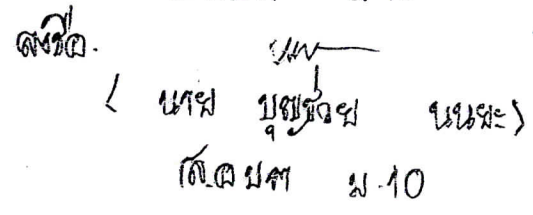 ลงชื่อ.
( นาย บุญช่วย นนยะ)
ส.อบต ม.10